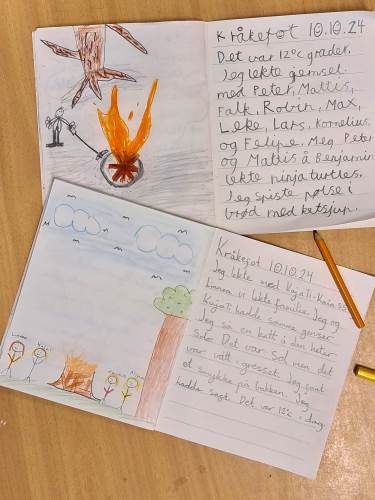 Kråkefot 10.10.24
Det var 12°c grader.
Jeg lekte gjemsel
med Peter, Mattis,
Falk, Robin, Max,
Leke, Lars, Kornelius
og Felipe. Meg Peter
og Mattis å Benjamin
lekte ninjaturtles.
Jeg spiste pølse i
brød med ketsjup.
Kråkefot 10.10.24
Jeg lekte med Kaja Ti-Kaia
Linnea vi lekte familie. Jeg og
Kaja T. hadde samme genser
Jeg så en katt å den heter
Solo. Det var Sol men det
var vått gresset. Jeg fant
et smykke på bakken. Jeg
hadde sagt. Det var 12°c i dag.